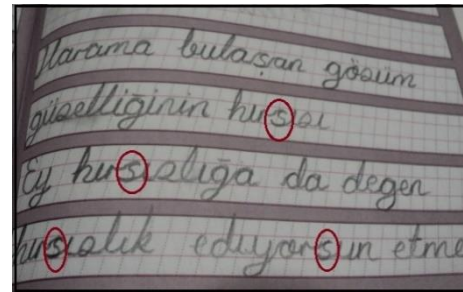 Harama bulaşan gözüm
güzelliğinin hırsızı
Ey hırsızlığa da degen
hırsızlık ediyorsun etme